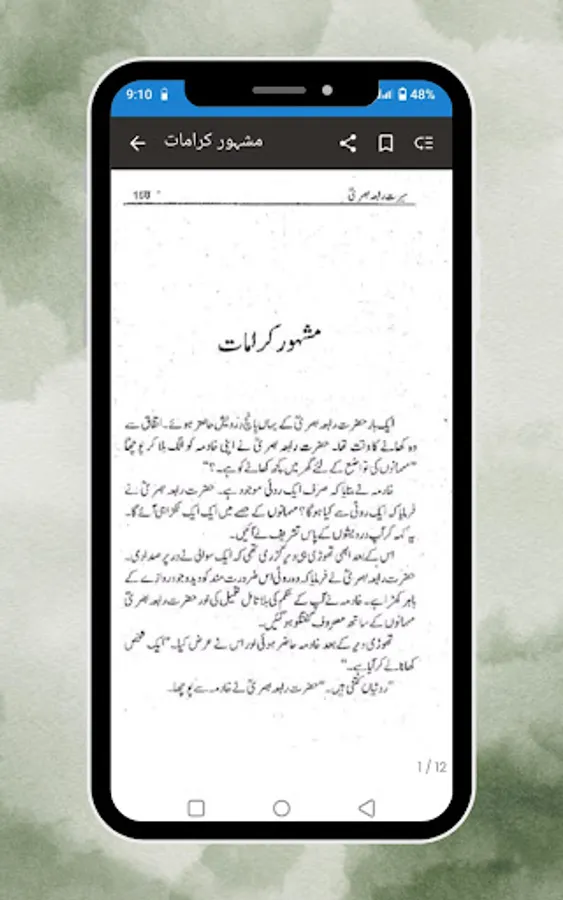 9:10
48%
مشہور کرامات
سیرت رابعہ بصریؒ
مشہور کرامات
ایک بار حضرت رابعہ بصریؒ کے یہاں پانچ درویش حاضر ہوئے۔ اتفاق سے
وہ کھانے کا وقت تھا۔ حضرت رابعہ بصریؒ نے اپنی خادمہ کو الگ بلا کر پوچھا
"مہمانوں کی تواضع کے لئے گھر میں کچھ کھانے کو ہے۔؟"
خادمہ نے بتایا کہ صرف ایک روٹی موجود ہے۔ حضرت رابعہ بصریؒ نے
فرمایا کہ ایک روٹی سے کیا ہوگا؟ مہمانوں کے حصے میں ایک ایک ٹکڑا ہی آئے گا۔
یہ کہہ کر آپ درویشوں کے پاس تشریف لے آئیں۔
اس کے بعد ابھی تھوڑی ہی دیر گزری تھی کہ ایک سوالی نے در پر صدا دی۔
حضرت رابعہ بصریؒ نے فرمایا کہ وہ روٹی اس ضرورت مند کو دیدو جو دروازے کے
باہر کھڑا ہے۔ خادمہ نے آپ کے حکم کی بلا تامل تعمیل کی اور حضرت رابعہ بصریؒ
مہمانوں کے ساتھ مصروف گفتگو ہو گئیں۔
تھوڑی دیر کے بعد خادمہ حاضر ہوئی اور اس نے عرض کیا۔ "ایک شخص
کھانا لے کر آیا ہے۔"
"روٹیاں کتنی ہیں۔" حضرت رابعہ بصریؒ نے خادمہ سے پوچھا۔
1 / 12